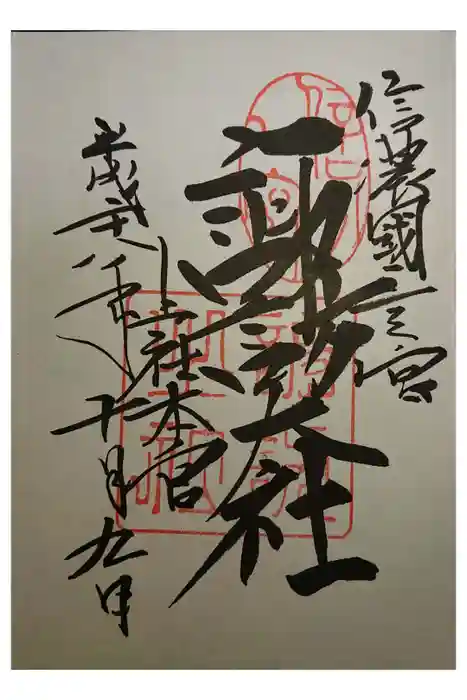 信濃國一之宮
諏訪大社
上社本宮
平成二十八年十月九日